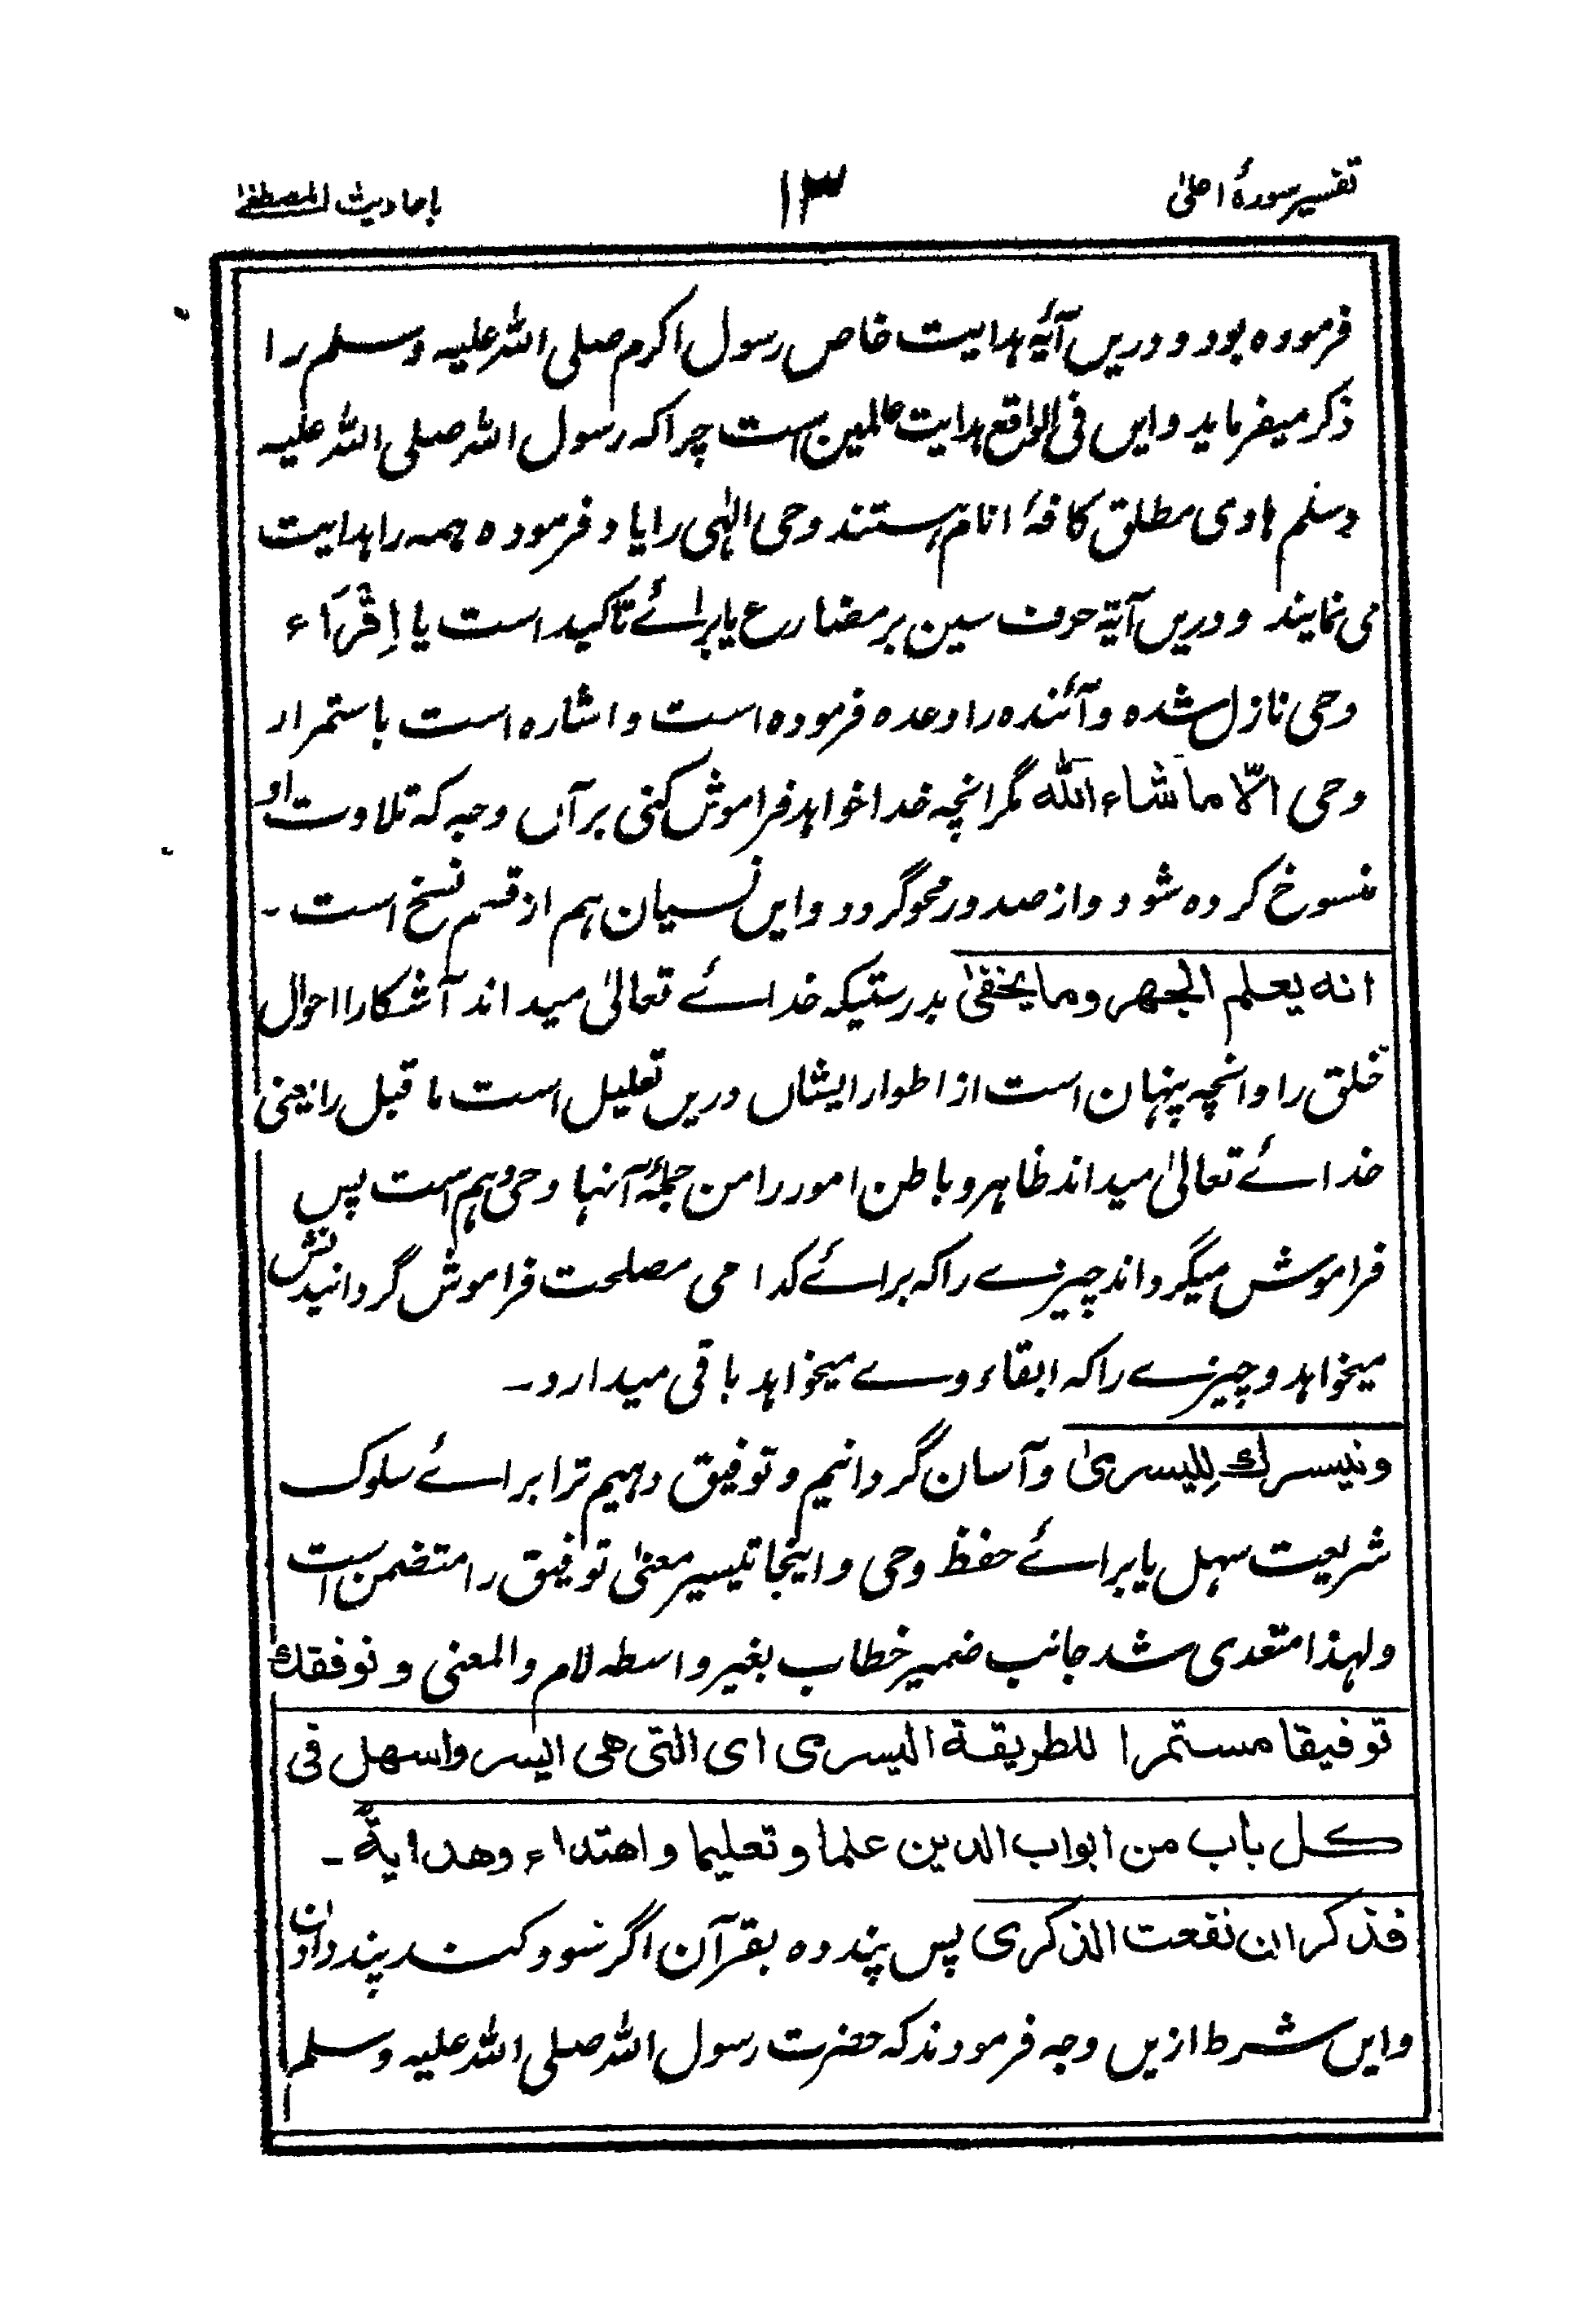 تفسیر سورۂ اعلیٰ
۱۳
باحادیث المصطفےٰ
فرمودہ بود و دریں آیۂ ہدایت خاص رسول اکرم صلی اللہ علیہ وسلم را
ذکر میفرماید و ایں فی الواقع ہدایت عالمین است چرا کہ رسول اللہ صلی اللہ علیہ
وسلم ہادی مطلق کافۂ انام ہستند وحی الٰہی را یاد فرمودہ ہمہ را ہدایت
می نمایند و دریں آیۃ حرف سین بر مضارع یا برائے تاکید است یا اِقْرَاء
وحی نازل شدہ و آئندہ را وعدہ فرمودہ است و اشارہ است باستمرار
وحی الّا ما شاء اللہ مگر انچہ خدا خواہد فراموش کنی بر آں وجہ کہ تلاوت او
منسوخ کردہ شود و از صدور محو گردد و ایں نسیان ہم از قسم نسخ است ۔
انہ یعلم الجھر وما یخفیٰ بدرستیکہ خدائے تعالیٰ میداند آشکارا احوال
خلق را و انچہ پنہان است از اطوار ایشاں دریں تعلیل است ما قبل را یعنی
خدائے تعالیٰ میداند ظاہر و باطن امور را من جملۂ آنہا وحی ہم است پس
فراموش میگرداند چیزے را کہ برائے کدامی مصلحت فراموش گردانیدنش
میخواہد و چیزے را کہ ابقاء وے میخواہد باقی میدارد ۔
ونیسرك لِلیسریٰ و آسان گردانیم و توفیق دہیم ترا برائے سلوک
شریعت سہل یا برائے حفظ وحی و اینجا تیسیر معنیٰ توفیق را متضمن است
ولہذا متعدی شد جانب ضمیر خطاب بغیر واسطہ لام والمعنی ونوفقك
توفیقا مستمرا للطریقۃ الیسری ای التی ھی ایسر واسھل فی
کل باب من ابواب الدین علما وتعلیما واھتداء وھدایۃً ۔
فذکر ان نفعت الذکری پس پند دہ بقرآن اگر سود کند پند دادن
و ایں شرط ازیں وجہ فرمودند کہ حضرت رسول اللہ صلی اللہ علیہ وسلم